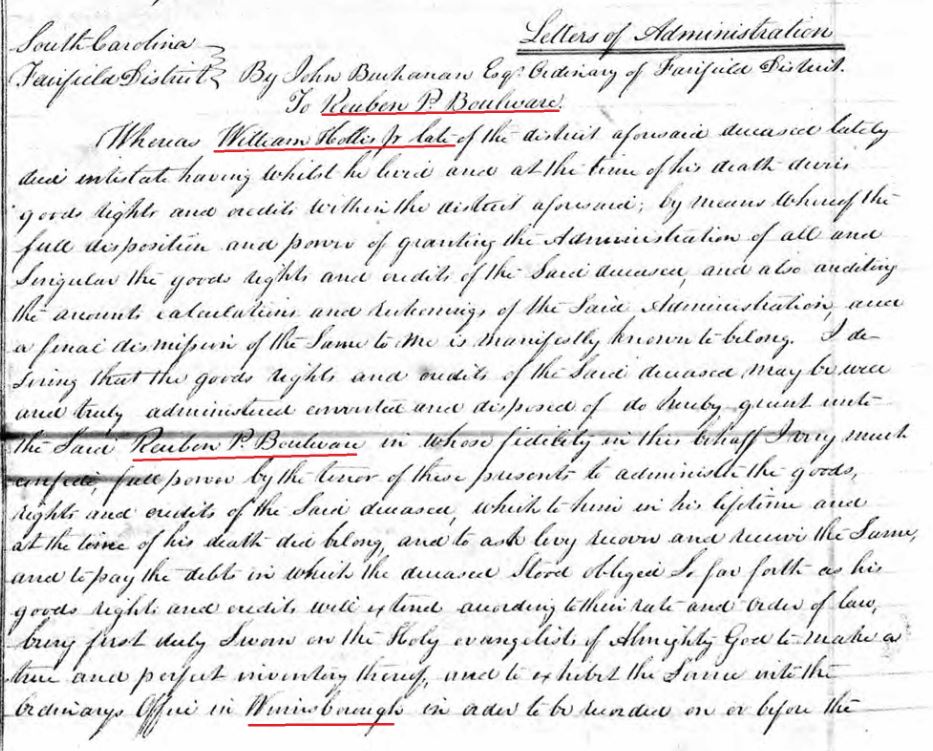 Letters of Administration
South Carolina
Fairfield District By John Buchanan Esqr. Ordinary of Fairfield District.
To Reuben P. Boulware.
Whereas William Hollis Jr late of the district aforesaid deceased lately
died intestate having whilst he lived and at the time of his death divers
goods rights and credits within the district aforesaid; by means whereof the
full disposition and power of granting the Administration of all and
Singular the goods rights and credits of the Said deceased, and also auditing
the accounts calculations and reckonings of the Said Administration, and
a final dismission of the Same to me is manifestly known to belong. I de-
siring that the goods rights and credits of the Said deceased may be well
and truly administered converted and disposed of do hereby grant unto
the Said Reuben P. Boulware in whose fidelity in this behalf I very much
confide, full power by the tenor of these presents to administer the goods,
rights and credits of the Said deceased, which to him in his lifetime and
at the time of his death did belong, and to ask levy recover and receive the Same,
and to pay the debts in which the deceased Stood obliged So far forth as his
goods rights and credits will extend according to their rate and order of law,
being first duly Sworn on the Holy evangelists of Almighty God to make a
true and perfect inventory thereof, and to exhibit the Same into the
Ordinarys Office in Winnsborough in order to be recorded on or before the